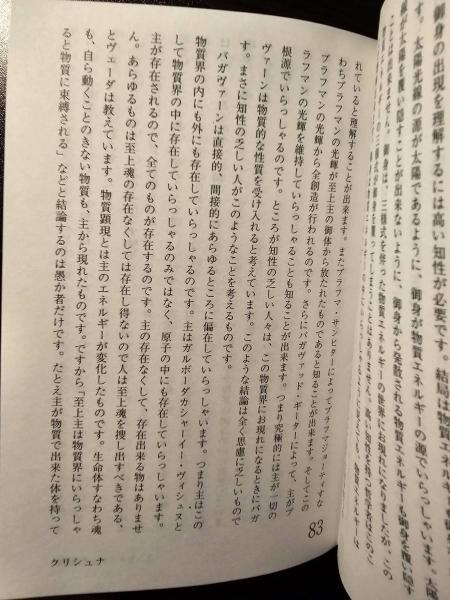 御身の出現を理解するには高い知性が必要です。結局は物質エネルギー
す。太陽光線の源が太陽であるように、御身が物質エネルギーの源でいらっしゃいます。太
線が太陽を覆い隠すことが出来ないように、御身から発散される物質エネルギーも御身を覆い隠す
ことは出来ません。御身は、三様式を伴った物質エネルギーの世界にお現れになりましたが、この
れていると理解することが出来ます。またブラフマ・サンヒターによってブラフマジョーティすな
わちブラフマンの光輝が至上主の御体から放たれたものであると知ることが出来ます。そしてこの
ブラフマンの光輝から全創造が行われるのです。さらにバガヴァッド・ギーターによって、主がブ
ラフマンの光輝を維持していらっしゃることも知ることが出来ます。つまり究極的には主が一切の
根源でいらっしゃるのです。ところが知性の乏しい人々は、この物質界にお現れになるときにバガ
ヴァーンは物質的な性質を受け入れると考えています。このような結論は全く思慮に乏しいもので
す。まさに知性の乏しい人がこのようなことを考えるものです。
バガヴァーンは直接的、間接的にあらゆるところに偏在していらっしゃいます。つまり主はこの
物質界の内にも外にも存在していらっしゃるのです。主はガルボーダカシャーイー・ヴィシュヌと
して物質界の中に存在していらっしゃるのみではなく、原子の中にも存在していらっしゃいます。
主が存在されるので、全てのものが存在するのです。主の存在なくして、存在出来る物はありませ
ん。あらゆるものは至上魂の存在なくしては存在し得ないので人は至上魂を捜し出すべきである、
とヴェーダは教えています。物質顕現とは主のエネルギーが変化したものです。生命体すなわち魂
も、自ら動くことのきない物質も、主から現れたものです。ですから「至上主は物質界にいらっしゃ
ると物質に束縛される」などと結論するのは愚か者だけです。たとえ主が物質で出来た体を持って
83
クリシュナ